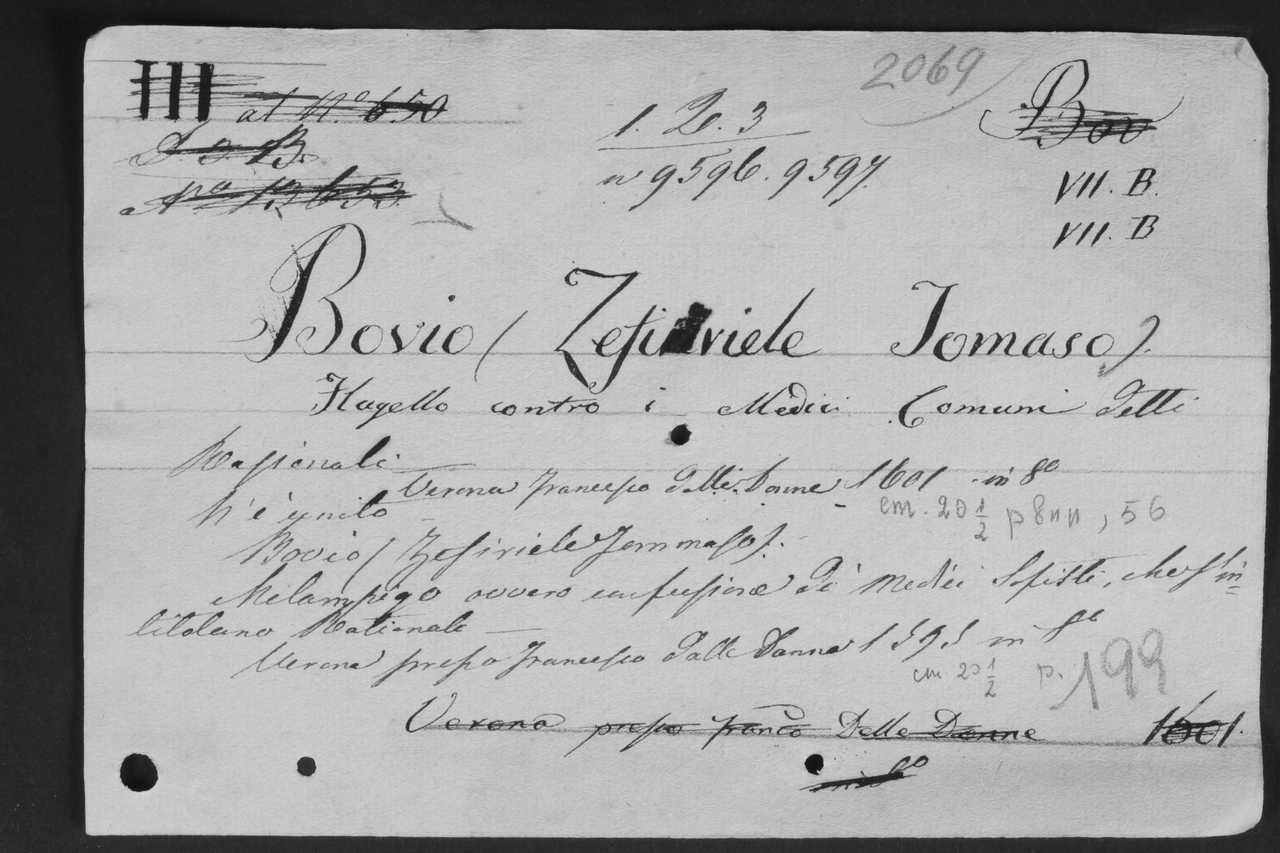 2069
III al N.º 650
1. Z. 3
Bov
nº 9596. 9597.
VII. B.
VII. B
Bovio (Zefiriele Tomaso).
Flagello contro i Medici Comuni detti
Rasionali.
Verona Francesco dalle Donne 1601 in 8º
V'è unito
cm. 20 1/2 p 8nn, 56
Bovio (Zefiriele Tommaso).
Melampigo ovvero confusione di Medici Sofisti, che s'in=
titolano Rationali —
Verona presso Francesco dalle Donne 1595 in 8º
cm 20 1/2 p. 199
Verona presso Franco Delle Donne 1601.
in 8º